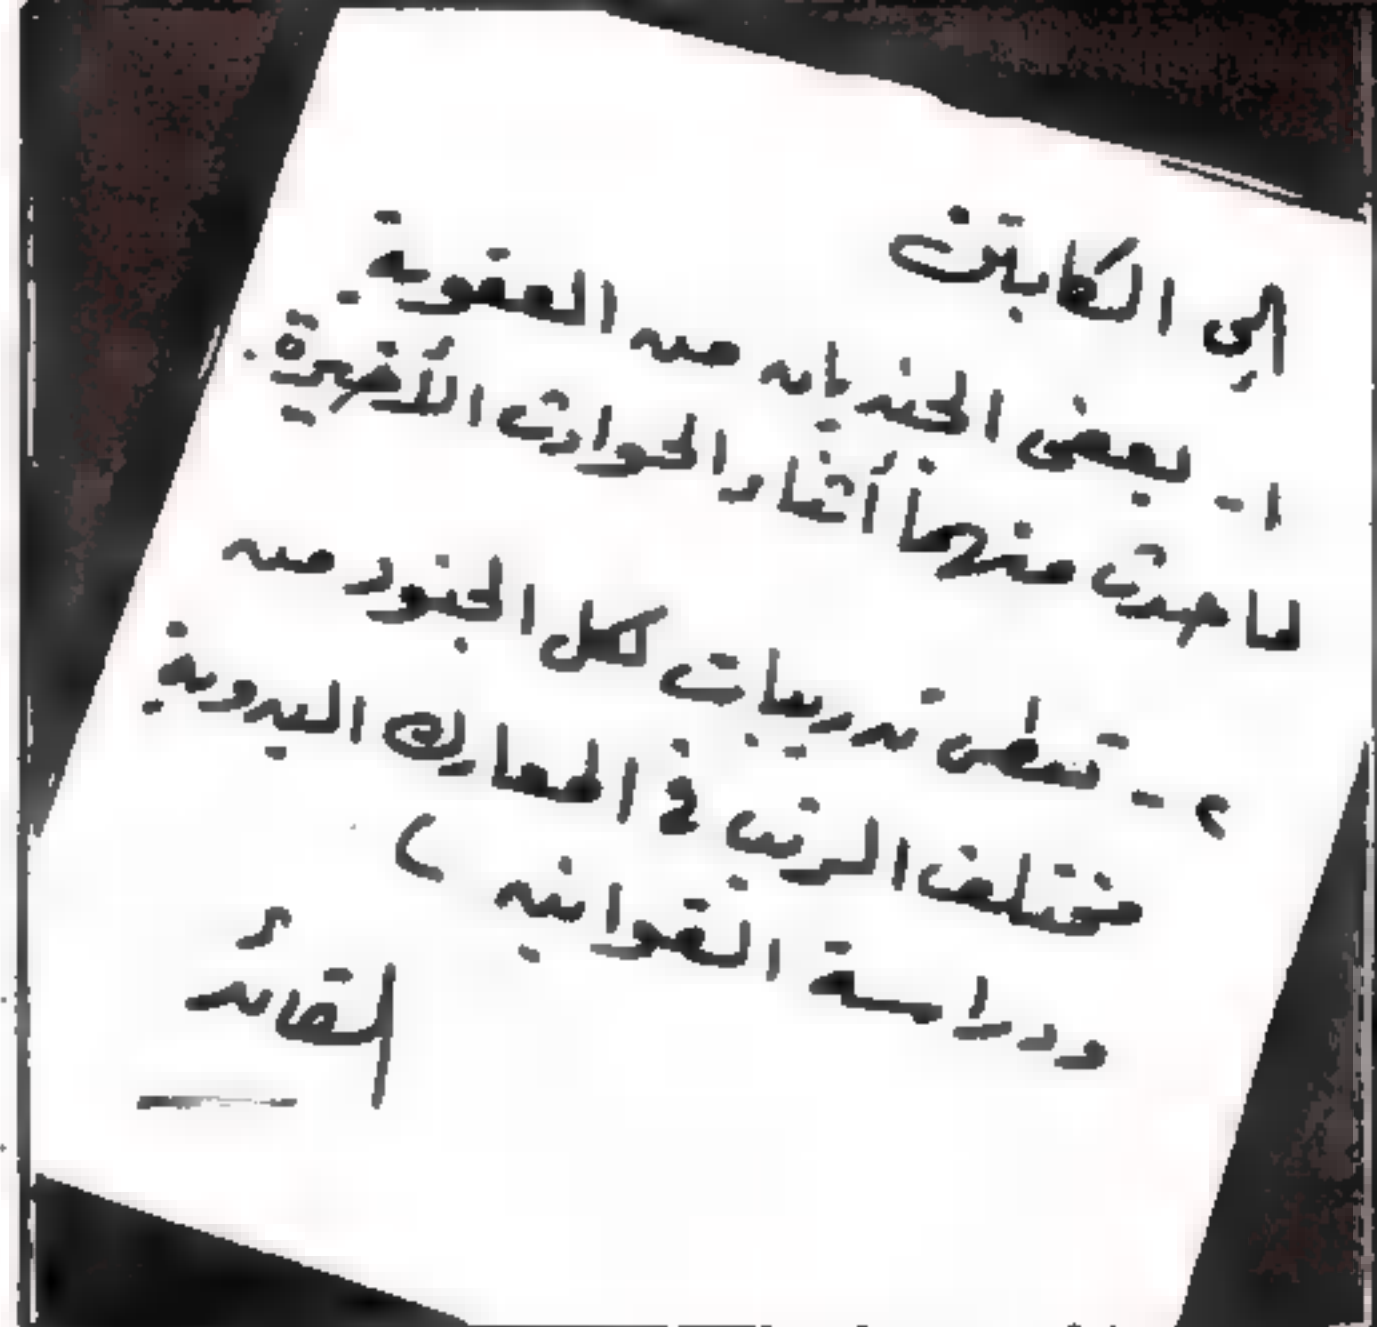 إلى الكابتن
١- يعفى الجنديان من العقوبة
لما حدث منهما أثناء الحوادث الأخيرة.
٢- تعطى تدريبات لكل الجنود من
مختلف الرتب في المعارك اليدوية
ودراسة القوانين
القائد